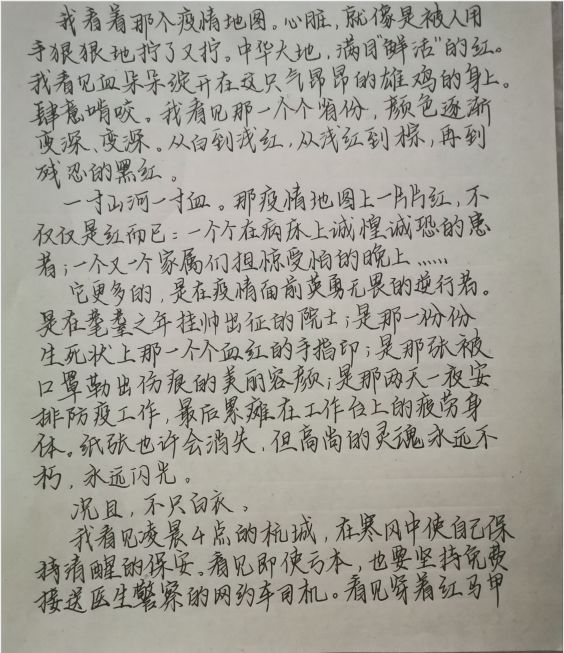 我看着那个疫情地图。心脏,就像是被人用
手狠狠地拧了又拧。中华大地,满目“鲜活”的红。
我看见血朵朵绽开在这只气昂昂的雄鸡的身上。
肆意啃咬。我看见那一个个省份,颜色逐渐
变深、变深。从白到浅红,从浅红到棕,再到
残忍的黑红。
一寸山河一寸血。那疫情地图上一片片红,不
仅仅是红而已:一个个在病床上诚惶诚恐的患
者;一个又一个家属们担惊受怕的晚上……
它更多的,是在疫情面前英勇无畏的逆行者。
是在耄耋之年挂帅出征的院士;是那一份份
生死状上那一个个血红的手指印;是那张被
口罩勒出伤痕的美丽容颜;是那两天一夜安
排防疫工作,最后累瘫在工作台上的疲劳身
体。纸张也许会消失,但高尚的灵魂永远不
朽,永远闪光。
况且,不只白衣。
我看见凌晨4点的杭城,在寒风中使自己保
持清醒的保安。看见即使亏本,也要坚持免费
接送医生警察的网约车司机。看见穿着红马甲